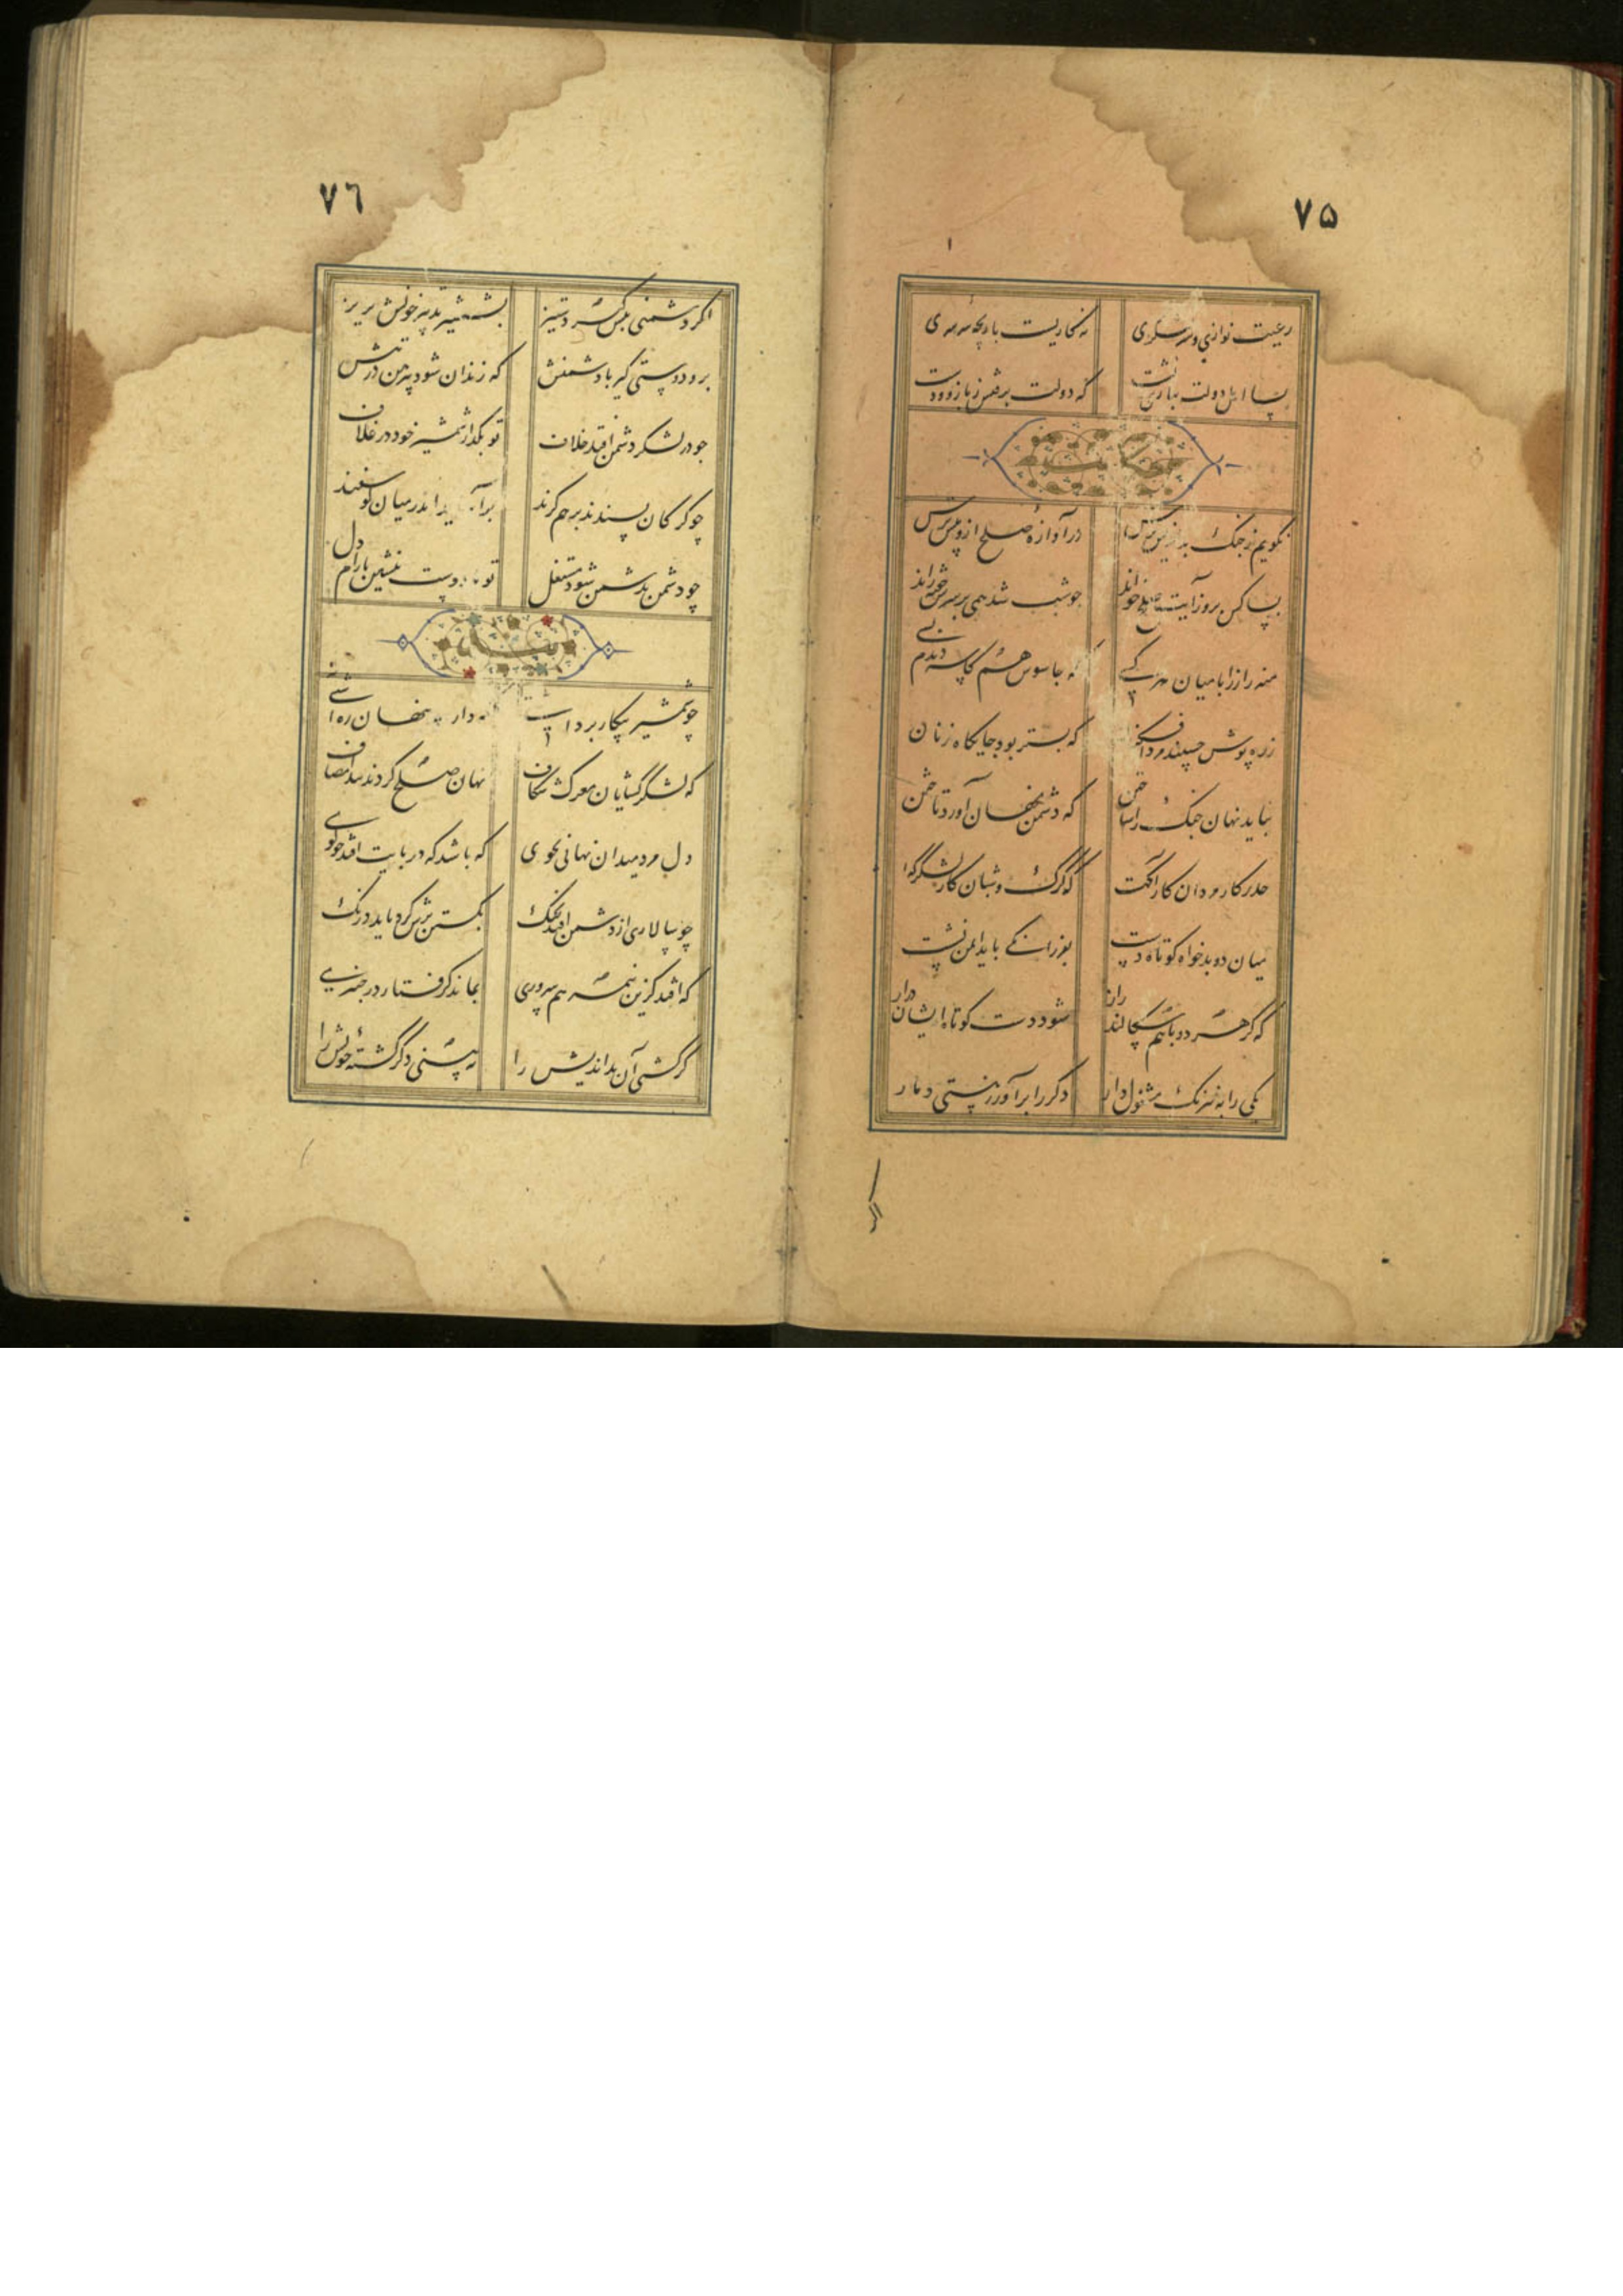 ۷۵
رعیت نوازی و سر لشکری نه کاریست بازیچه سرسری
بسا اهل دولت ببازی نشست که دولت برفتش ز بازی ز دست
نگویم ز جنک بد اندیش ترس در آوازه صلح ازو بیش ترس
بسا کس بروز آیت صلح خواند جو شب شد سپه بر سر خفته راند
منه راز را با میان هر کسے که جاسوس هم کاسه دیدم بسے
زره پوش خسپند مرد افکنان که بستر بود جایکاه زنان
بباید نهان جنک را ساختن که دشمن نهان آورد تاختن
حذر کار مردان کار آکهست
میان دو بد خواه کوتاه دست بفرزانکے باید ایمن نشست
که کر هر دو با هم سکالند راز شود دست کوتاه ایشان دراز
یکی را به نیرنک مشغول دار دکر را برآور ز هستی دمار
۷٦
اکر دشمنی پیش کیرد ستیز بشمشیر تدبیر خونش بریز
برو دوستی کیر با دشمنش که زندان شود پیرهن در تنش
جو در لشکر دشمن افتد خلاف تو بکذار شمشیر خود در غلاف
چو کرکان پسندند بر هم کزند برآساید اندر میان کوسفند
چو دشمن بدشمن شود مشتغل تو با دوست بنشین بآرام دل
چو شمشیر پیکار برداشتے نکه دار پنهان ره آشتے
که لشکر کشایان معرکه شکاف نهان صلح کردند پیدا مصاف
دل مرد میدان نهانی بجوی که باشد که در پایت افتد چو کوی
چو سالاری از دشمن افتد بچنک بکشتن برش کرد باید درنک
که افتد کزین نیمه هم سروری بماند کرفتار در چنبری
کر کشتی آن بد اندیش را نه بینی دکر کشتهٔ خویش را